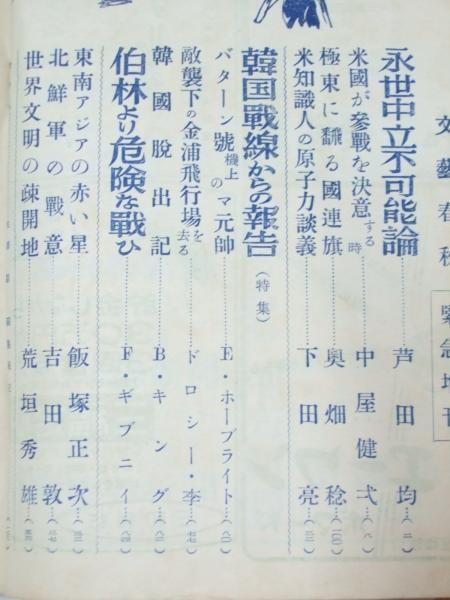 文藝春秋
緊急増刊
永世中立不可能論……芦田均…(二)
米國が參戰を決意する時……中屋健弌…(八)
極東に飜る國連旗……奥畑稔…(一〇)
米知識人の原子力談義……下田亮…(三二)
韓国戰線からの報告(特集)
バターン號機上のマ元帥……E・ホーブライト…(八〇)
敵襲下の金浦飛行場を去る……ドロシー・李…(七七)
韓國脱出記……B・キング…(八二)
伯林より危険な戰ひ……F・ギブニイ…(八四)
東南アジアの赤い星……飯塚正次
北鮮軍の戰意……吉田敦
世界文明の疎開地……荒垣秀雄